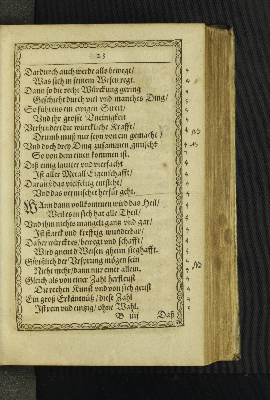 23
Dardurch auch werde alls beweget/
Was sich in seinem Wesen regt.
Dann so die rechte Würckung gering
Geschicht durch viel vnd manches Ding/
So führets ein ewigen Streit/
Vnd ihr grosse Vneinigkeit
Verhindert die würckliche Krafft/
Drumb muß nur seyn von ein gemacht/
Vnd doch drey Ding zusammen gmischt
So von dem einen kommen ist.
Daß einig lauter vnd vierfacht
Ist aller Metall Eigenschafft/
Daraus das vielfeltig entsteht/
Vnd das vermischet herfür geht.
WAnn dann vollkommen würd das Heil/
Weil es in sich hat alle Theil/
Vnd ihm nichts mangelt gantz vnd gar/
Ist starck vnd krefftig wunderbar/
Daher würcktes/ bewegt vnd schafft/
Wird gnent d'Weisen gheim
Gsenßlich der Vrsprung mögen sein
Nicht mehr/ dann nur einer allein.
Gleich als von einer Zahl herfleust
Die rechten Kunst vnd von sich geust
Ein groß Erkäntnüß/ diese Zahl
Ist rein vnd einzig/ ohne Wahl.
B iiij Daß